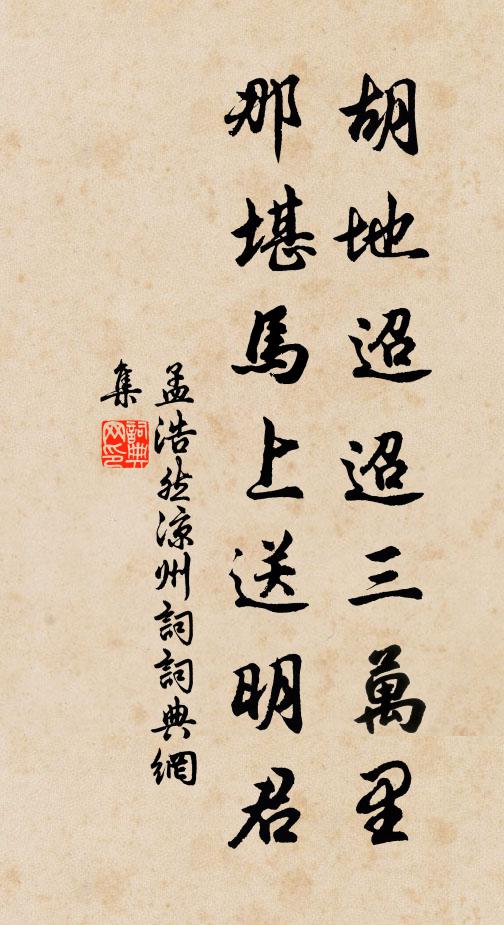 胡地迢迢三萬里
那堪馬上送明君
孟浩然涼州詞詞典網
集
詞典
网印